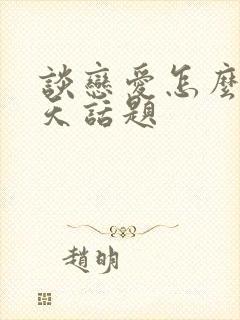 談戀愛怎麼
天話題
趙明